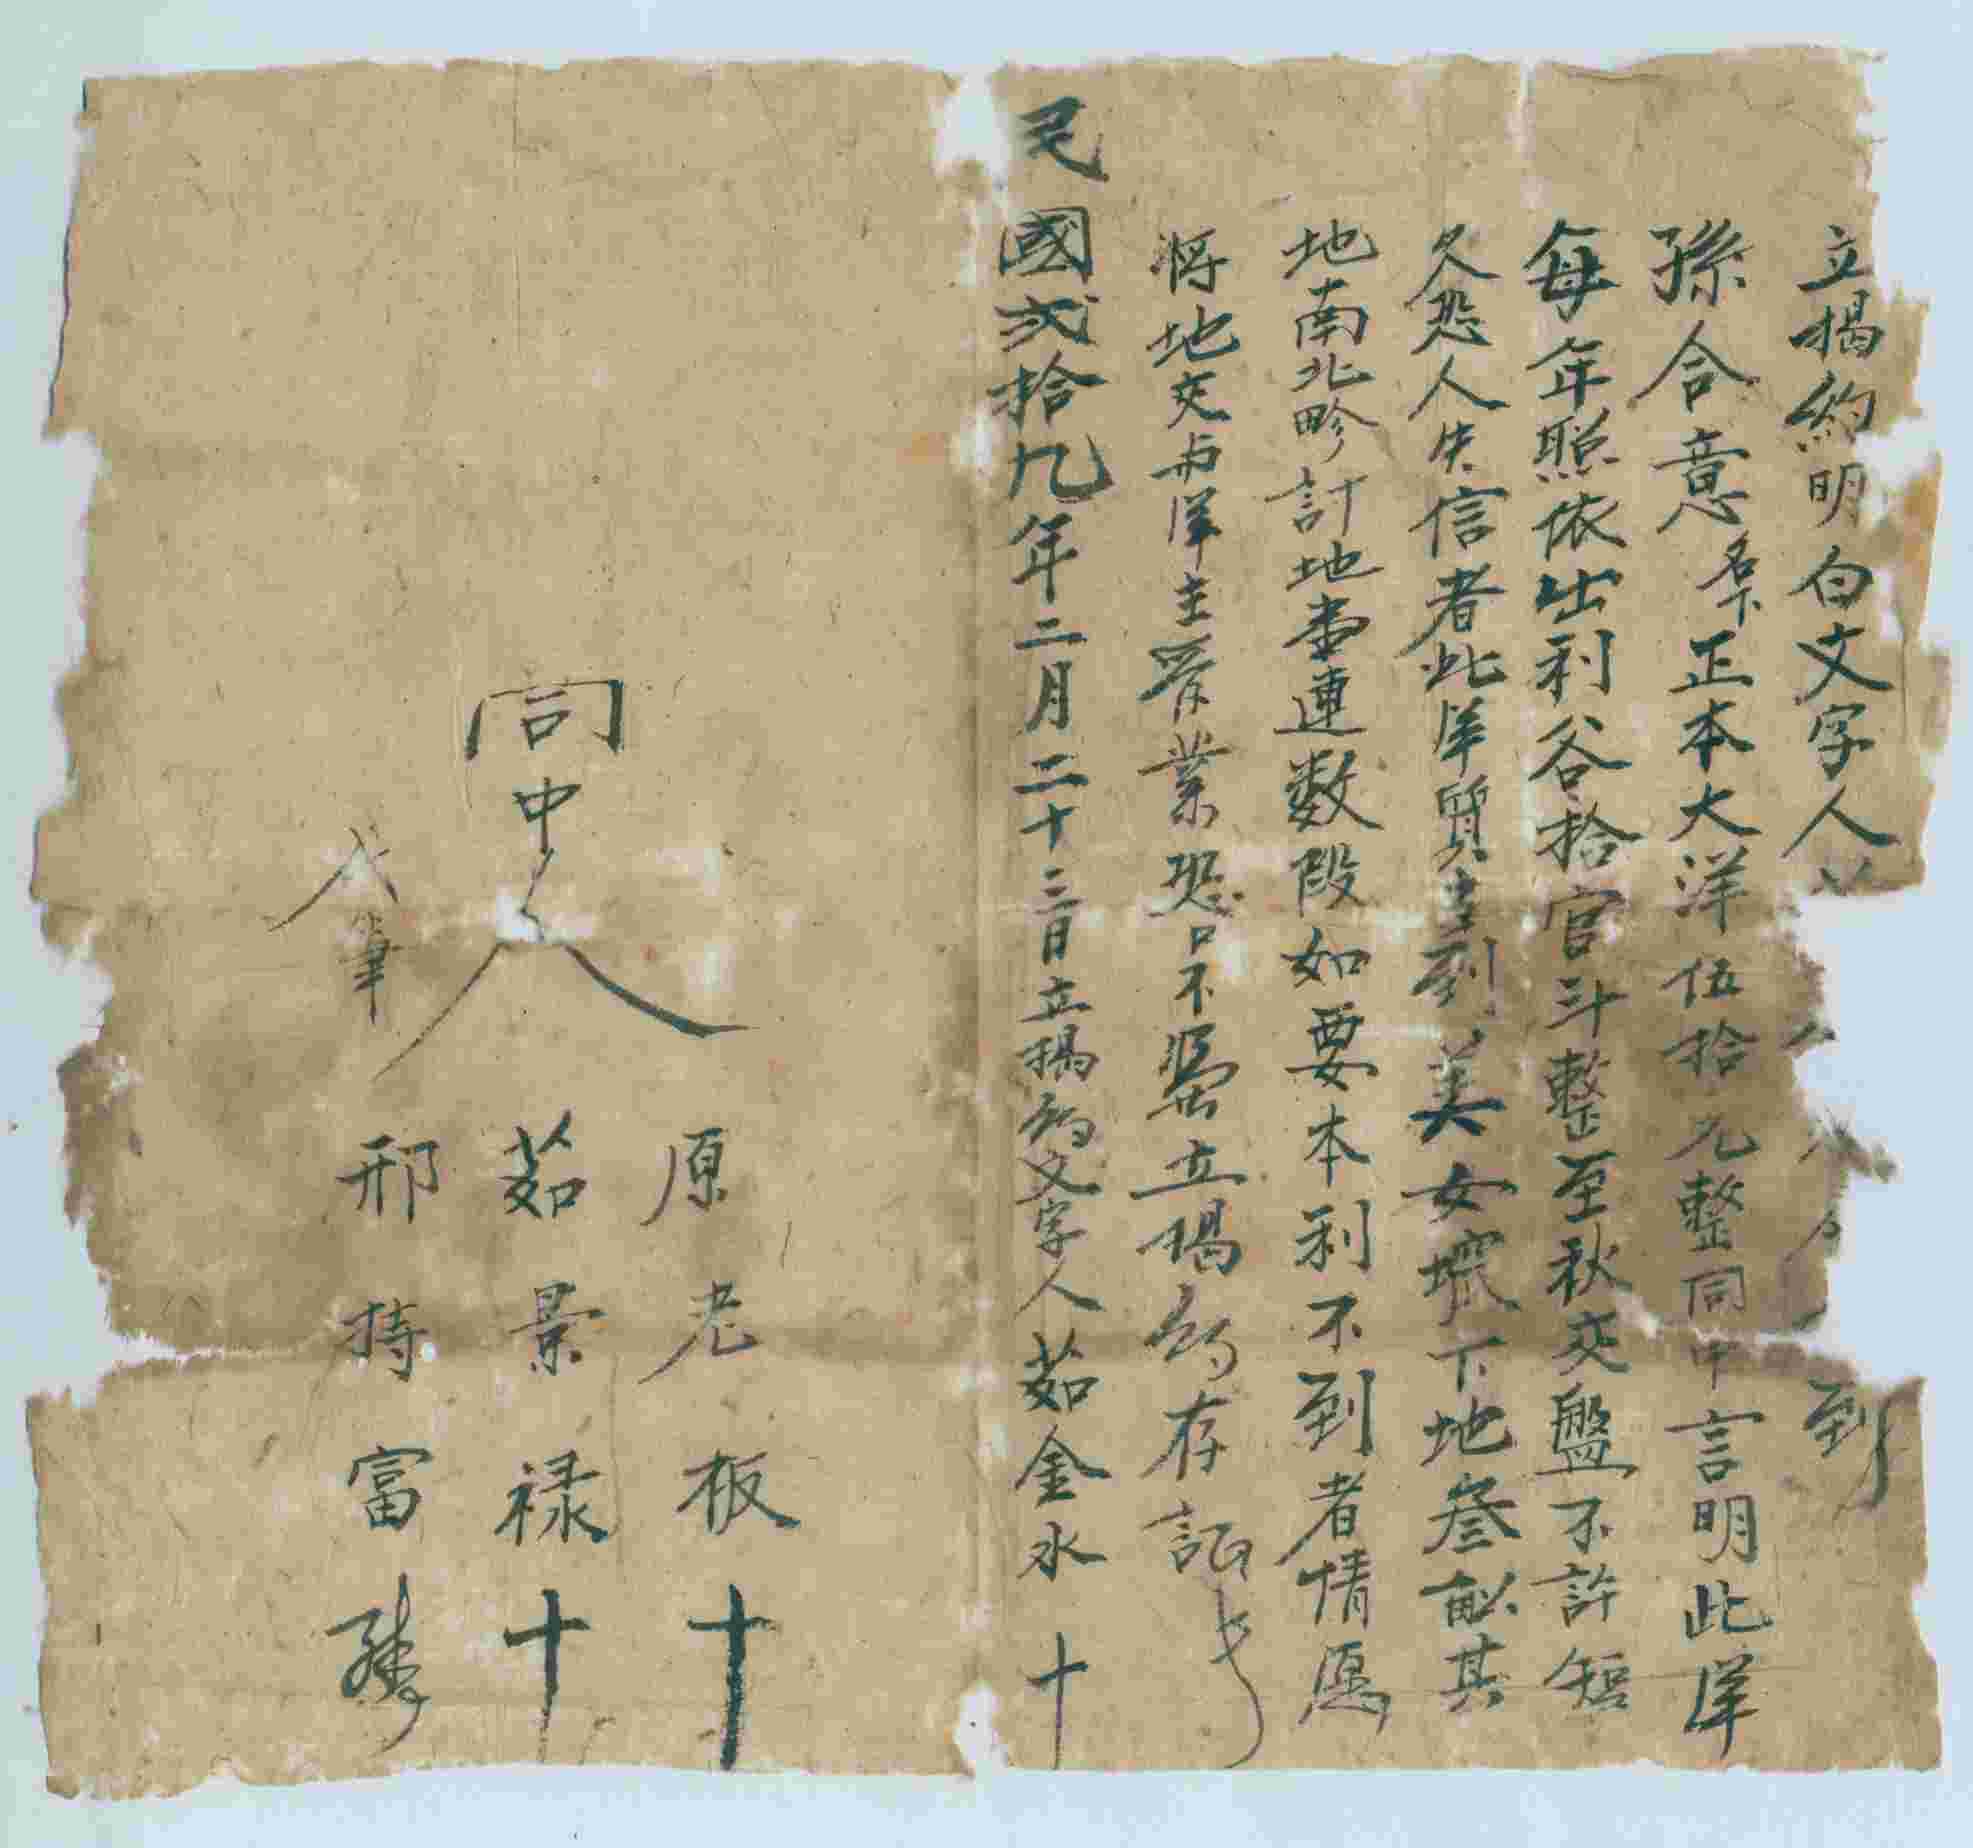 立揭約明白文字人
到
孫合意名下正本大洋伍拾元整同中言明此洋
每年照依出利谷拾官斗整至秋交盤不許短
欠恐人失信者此洋質到美女壪下地叁畝其
地南北畛計地壹連数段如要本利不到者情愿
将地交与洋主管業恐口不憑立揭約存証
民國弍拾九年二月二十三日立揭約文字人茹金水十
同中人
原老板十
茹景禄十
代筆
邢持富